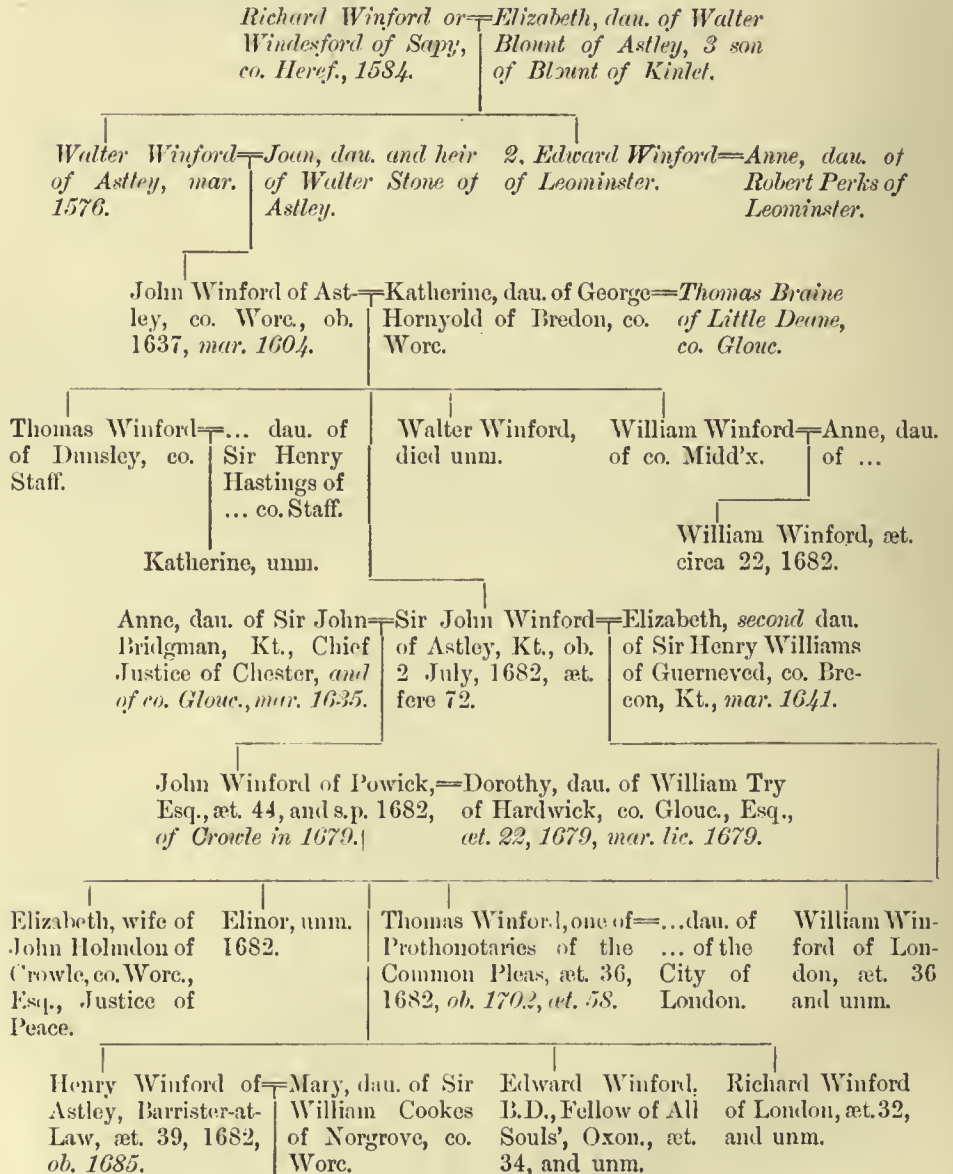 Richard Winford or
Windesford of Sapy,
co. Heref., 1584.
Elizabeth, dau. of Walter
Blount of Astley, 3 son
of Blount of Kinlet.
Walter Winford
of Astley, mar.
1576.
Joan, dau. and heir
of Walter Stone of
Astley.
2. Edward Winford
of Leominster.
Anne, dau. of
Robert Perks of
Leominster.
John Winford of Ast-
ley, co. Worc., ob.
1637, mar. 1604.
Katherine, dau. of George
Hornyold of Bredon, co.
Worc.
Thomas Braine
of Little Deane,
co. Glouc.
Thomas Winford
of Dunsley, co.
Staff.
... dau. of
Sir Henry
Hastings of
... co. Staff.
Walter Winford,
died unm.
William Winford
of co. Midd'x.
Anne, dau.
of ...
Katherine, unm.
William Winford, æt.
circa 22, 1682.
Anne, dau. of Sir John
Bridgman, Kt., Chief
Justice of Chester, and
of co. Glouc., mar. 1635.
Sir John Winford
of Astley, Kt., ob.
2 July, 1682, æt.
fere 72.
Elizabeth, second dau.
of Sir Henry Williams
of Guerneved, co. Bre-
con, Kt., mar. 1641.
John Winford of Powick,
Esq., æt. 44, and s.p. 1682,
of Crowle in 1679.
Dorothy, dau. of William Try
of Hardwick, co. Glouc., Esq.,
æt. 22, 1679, mar. lic. 1679.
Elizabeth, wife of
John Holmdon of
Crowle, co. Worc.,
Esq., Justice of
Peace.
Elinor, unm.
1682.
Thomas Winford, one of
Prothonotaries of the
Common Pleas, æt. 36,
1682, ob. 1702, æt. 58.
...dau. of
... of the
City of
London.
William Win-
ford of Lon-
don, æt. 36
and unm.
Henry Winford of
Astley, Barrister-at-
Law, æt. 39, 1682,
ob. 1685.
Mary, dau. of Sir
William Cookes
of Norgrove, co.
Worc.
Edward Winford,
B.D., Fellow of All
Souls', Oxon., æt.
34, and unm.
Richard Winford
of London, æt. 32,
and unm.